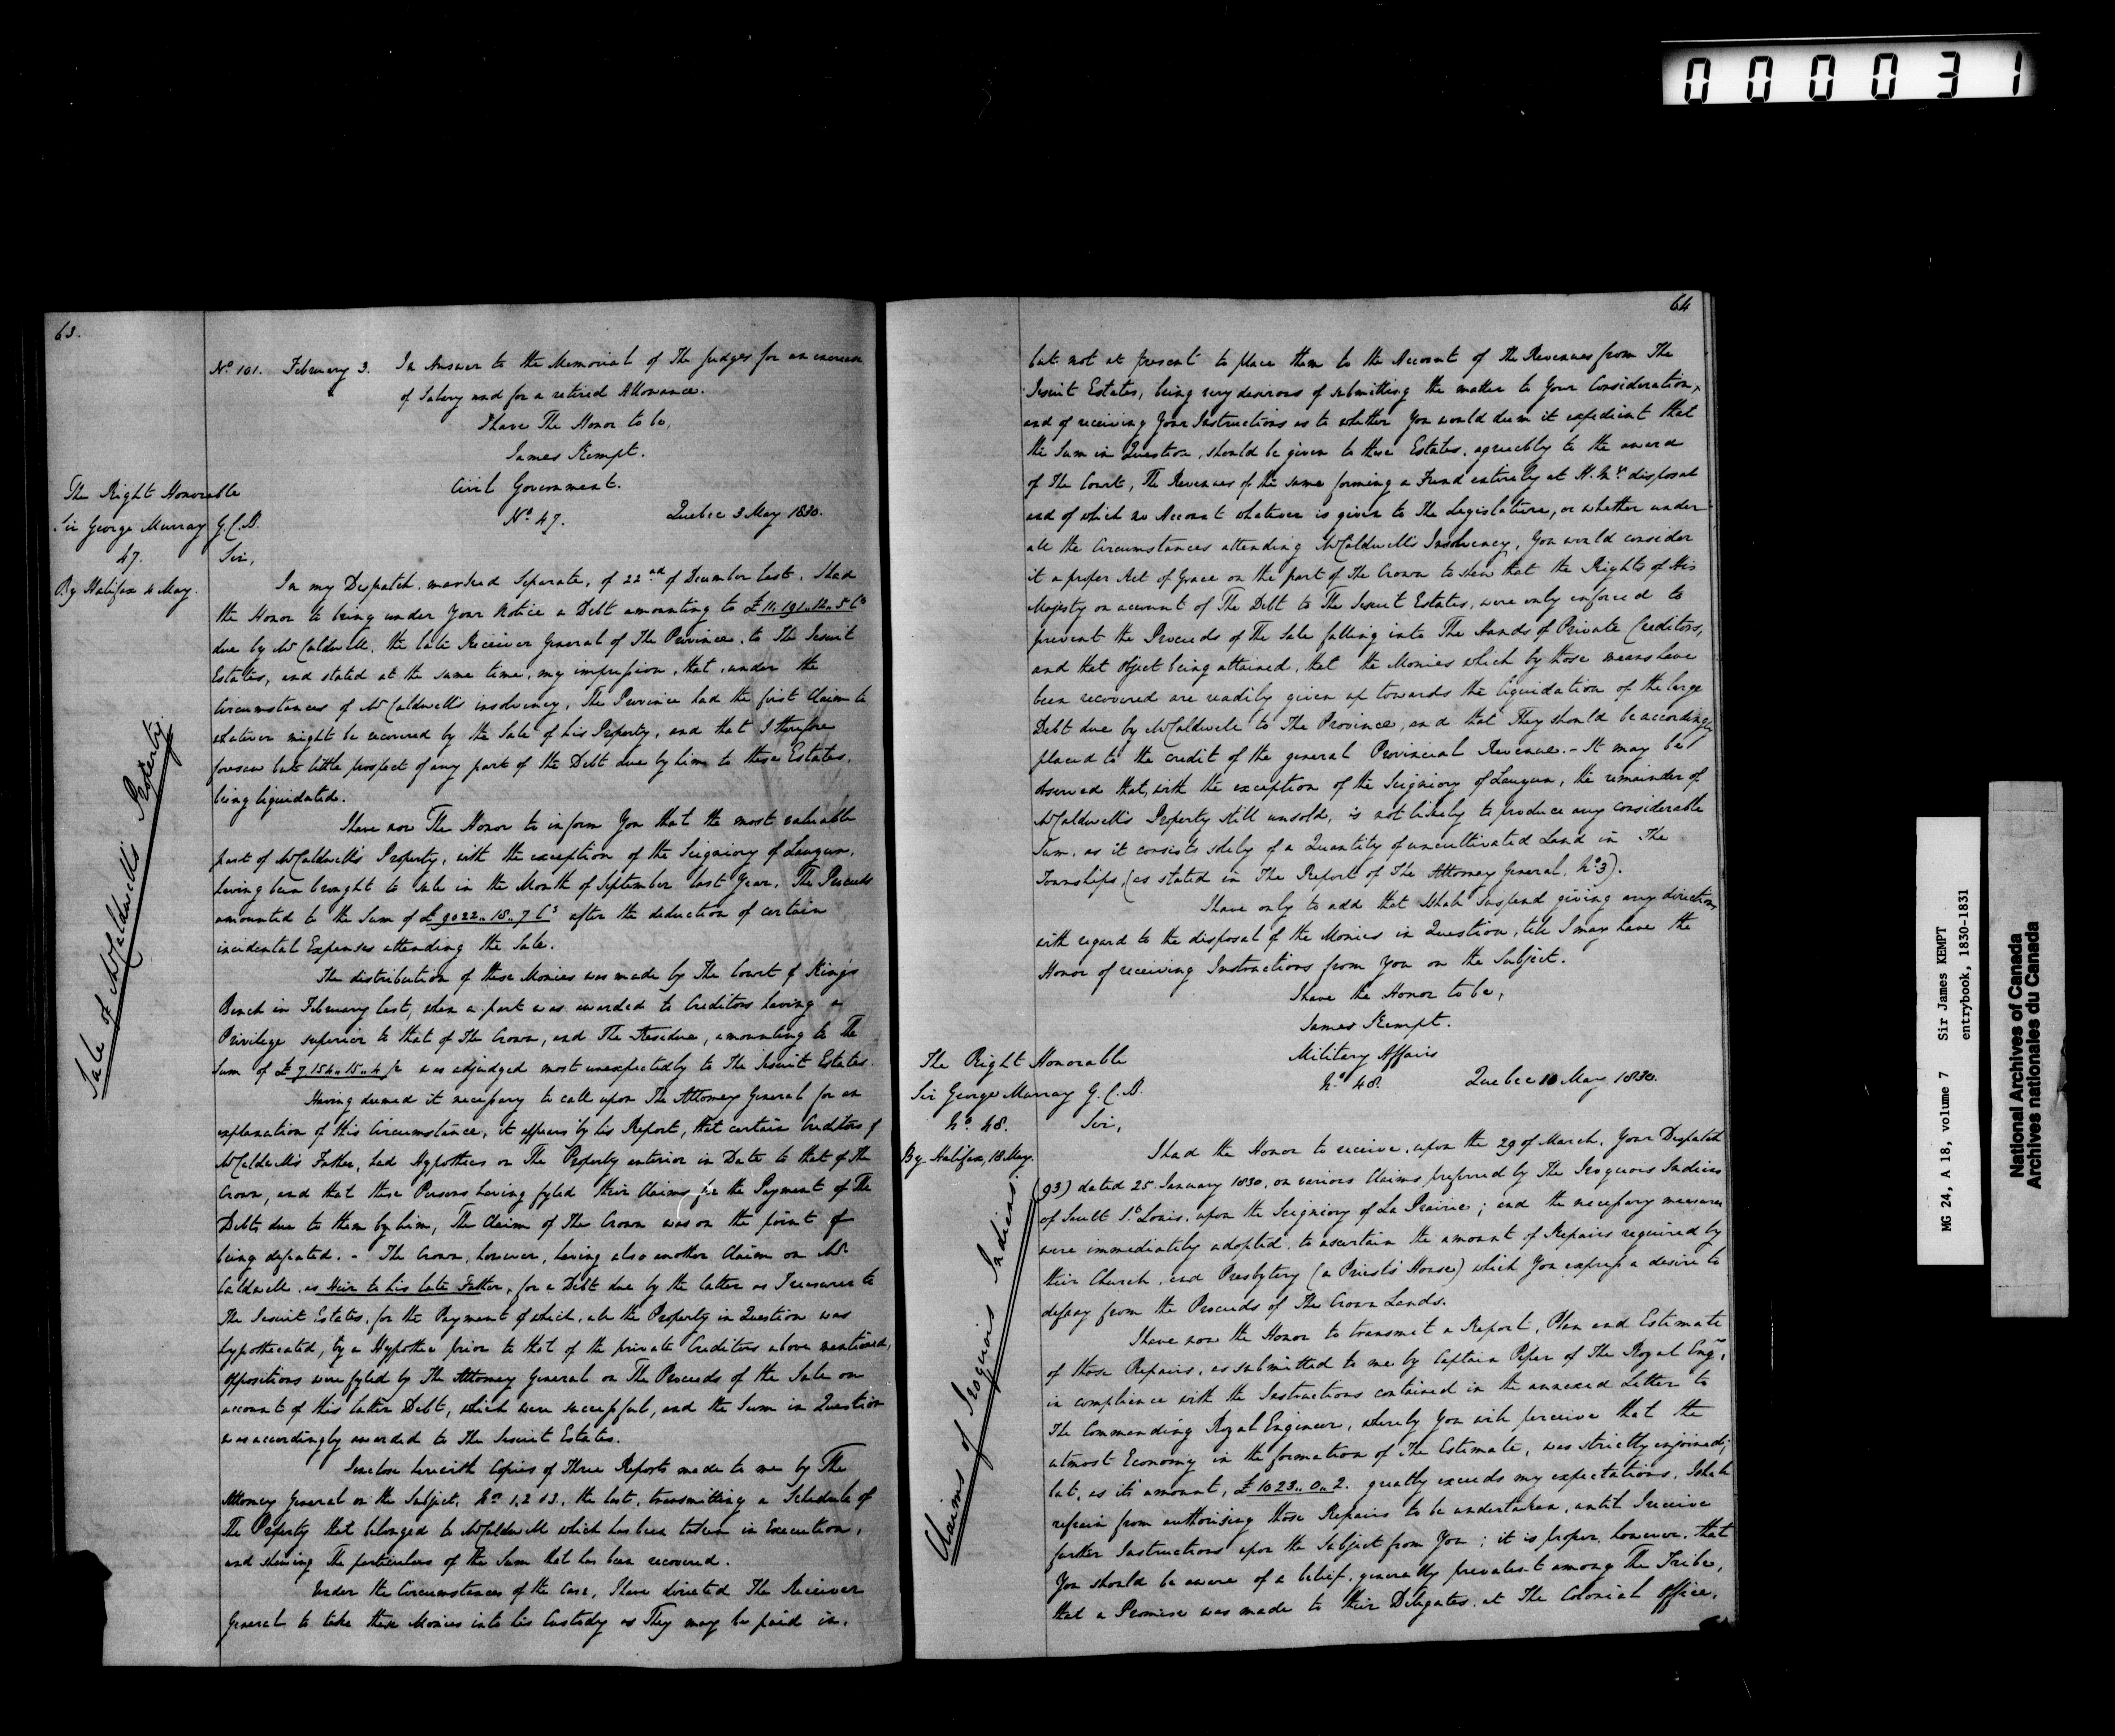 000031
63.
No. 101. February 3. In Answer to the Memorial of The Judges for an increase
of Salary and for a retired Allowance.
I have The Honor to be,
James Kempt.
Civil Government.
No. 47. Quebec 3 May 1830.
The Right Honorable
Sir George Murray G.C.B.
47.
By Halifax 4 May.
Sale of Mr Caldwell's Property.
Sir,
In my Despatch, marked Separate, of 22nd of December last, I had
the Honor to bring under Your Notice a Debt amounting to £11,191..12..5 Cy
due by Mr Caldwell, the late Receiver General of The Province, to The Jesuit
Estates, and stated at the same time, my impression, that, under the
Circumstances of Mr Caldwell's insolvency, The Province had the first Claim to
whatever might be recovered by the Sale of his Property, and that I therefore
foresaw but little prospect of any part of the Debt due by him to these Estates,
being liquidated.
I have now The Honor to inform You that the most valuable
part of Mr Caldwell's Property, with the exception of the Seigniory of Lauzun,
having been brought to sale in the Month of September last Year, The Proceeds
amounted to the Sum of £9022..15..7 Cy after the deduction of certain
incidental Expenses attending the Sale.
The distribution of these Monies was made by The Court of King's
Bench in February last, when a part was awarded to Creditors having a
Privilege superior to that of The Crown, and The Residue, amounting to The
Sum of £7154..15..4 was adjudged most unexpectedly to The Jesuit Estates.
Having deemed it necessary to call upon The Attorney General for an
explanation of this Circumstance, it appears by his Report, that certain Creditors of
Mr Caldwell's Father, had Hypothecs on The Property anterior in Date to that of The
Crown, and that these Persons having fyled their Claims for the Payment of The
Debts due to them by him, The Claim of The Crown was on the point of
being defeated. - The Crown, however, having also another Claim on Mr
Caldwell, as Heir to his late Father, for a Debt due by the latter as Treasurer to
The Jesuit Estates, for the Payment of which, all the Property in Question was
hypothecated, by a Hypothec prior to that of the private Creditors above mentioned,
Oppositions were fyled by The Attorney General on The Proceeds of the Sale on
account of this latter Debt, which were successful, and the Sum in Question
was accordingly awarded to The Jesuit Estates.
I enclose herewith Copies of Three Reports made to me by The
Attorney General on the Subject, Nos 1, 2 & 3, the last, transmitting a Schedule of
The Property that belonged to Mr Caldwell which has been taken in Execution,
and shewing The particulars of the Sum that has been recovered.
Under the Circumstances of the Case, I have directed The Receiver
General to take these Monies into his Custody as They may be paid in,
64
but not at present to place them to the Account of the Revenues from The
Jesuit Estates, being very desirous of submitting the matter to Your Consideration,
and of receiving Your Instructions as to whether You would deem it expedient that
the Sum in Question, should be given to these Estates, agreeably to the award
of The Court, The Revenues of the same forming a Fund entirely at H.My's disposal
and of which no Account whatever is given to The Legislature, or whether under
all the Circumstances attending Mr Caldwell's Insolvency, You would consider
it a proper Act of Grace on the part of The Crown to shew that the Rights of His
Majesty on account of The Debt to The Jesuit Estates, were only enforced to
prevent the Proceeds of The Sale falling into The Hands of Private Creditors,
and that object being attained, that the Monies which by those means have
been recovered are readily given up towards the liquidation of the large
Debt due by Mr Caldwell to The Province, and that They should be accordingly
placed to the credit of the general Provincial Revenue. - It may be
observed that, with the exception of the Seigniory of Lauzun, the remainder of
Mr Caldwell's Property still unsold, is not likely to produce any considerable
Sum, as it consists solely of a Quantity of uncultivated Land in The
Townships, (as stated in The Report of The Attorney General, No 3).
I have only to add that I shall suspend giving any directions
with regard to the disposal of the Monies in Question, till I may have the
Honor of receiving Instructions from You on the Subject.
I have the Honor to be,
James Kempt.
Military Affairs
No. 48. Quebec 10 May 1830.
The Right Honorable
Sir George Murray G.C.B.
No. 48.
By Halifax, 18 May.
Claims of Iroquois Indians.
Sir,
I had the Honor to receive, upon the 29 of March, Your Despatch
(93) dated 25 January 1830, on various Claims preferred by The Iroquois Indians
of Sault St. Louis, upon the Seigniory of La Prairie; and the necessary measures
were immediately adopted, to ascertain the amount of Repairs required by
their Church, and Presbytery (a Priest's House) which You express a desire to
defray from the Proceeds of The Crown Lands.
I have now the Honor to transmit a Report, Plan and Estimate
of those Repairs, as submitted to me by Captain Piper of The Royal Engrs,
in compliance with the Instructions contained in the annexed Letter to
The Commanding Royal Engineer, whereby You will perceive that the
utmost Economy in the formation of The Estimate, was strictly enjoined;
but, as its amount, £1023..0..2. greatly exceeds my expectations, I shall
refrain from authorising those Repairs to be undertaken, until I receive
further Instructions upon the Subject from You; it is proper, however, that
You should be aware of a belief, generally prevalent among The Tribe,
that a Promise was made to their Delegates, at The Colonial Office,
MG 24, A 18, volume 7 Sir James KEMPT
entrybook, 1830-1831
National Archives of Canada
Archives nationales du Canada